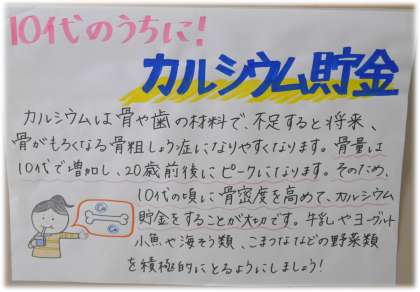 10代のうちに!
カルシウム貯金
カルシウムは骨や歯の材料で、不足すると将来、
骨がもろくなる骨粗しょう症になりやすくなります。骨量は
10代で増加し、20歳前後にピークになります。そのため、
10代の頃に骨密度を高めて、カルシウム
貯金をすることが大切です。牛乳やヨーグルト
小魚や海そう類、こまつななどの野菜類
を積極的にとるようにしましょう!